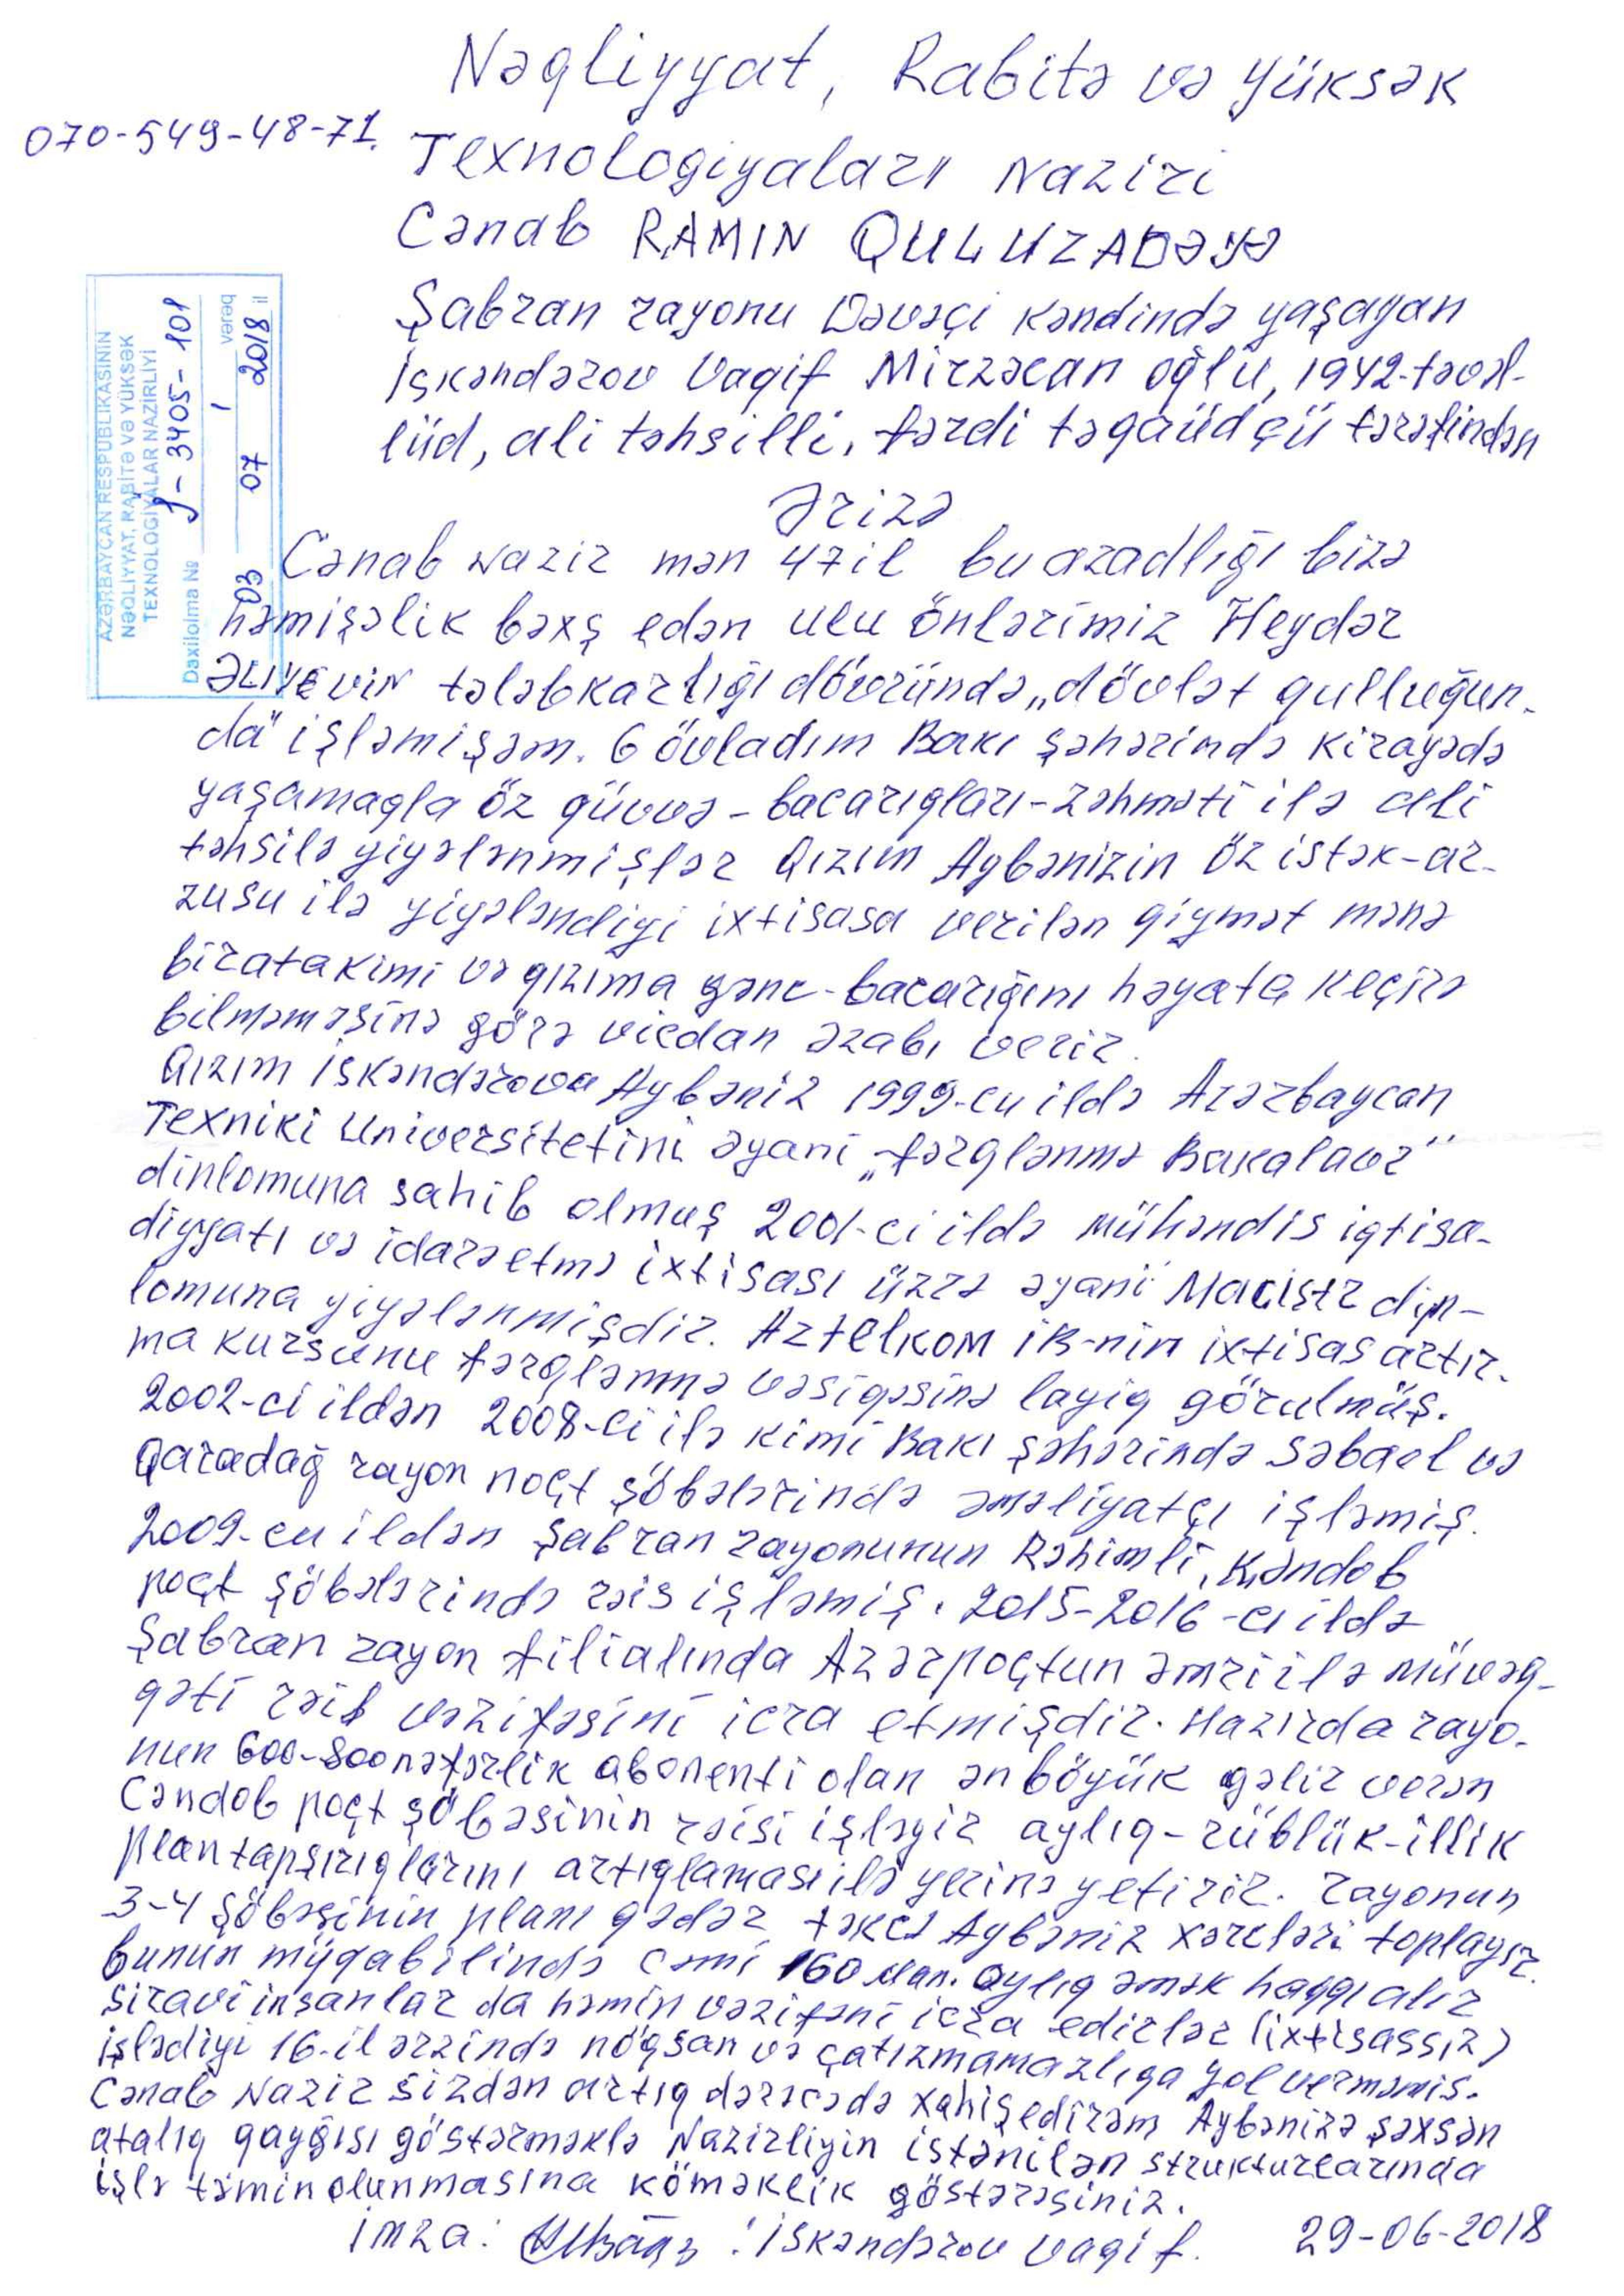 Nəqliyyat, Rabitə və Yüksək
070-549-48-71.
Texnologiyaları Naziri
Cənab RAMIN QULUZADƏYƏ
Şabran rayonu Dəvəçi kəndində yaşayan
İskəndərov Vaqif Mirzəcan oğlu, 1942-təvəl-
lüd, ali təhsilli, fərdi təqaüdçü tərəfindən
AZƏRBAYCAN RESPUBLİKASININ
NƏQLİYYAT, RABİTƏ VƏ YÜKSƏK
TEXNOLOGİYALAR NAZİRLİYİ
Daxilolma № 3405-101
1 vərəq
03 07 2018 il
Ərizə
Cənab Nazir mən 47 il bu azadlığı bizə
həmişəlik bəxş edən ulu önlərimiz Heydər
ƏLIYEVIN tələbkarlığı dövründə „dövlət qulluğun-
da" işləmişəm. 6 övladım Bakı şəhərində kirayədə
yaşamaqla öz qüvvə-bacarıqları-zəhməti ilə ali
təhsilə yiyələnmişlər Qızım Aybənizin öz istək-ar-
zusu ilə yiyələndiyi ixtisasa verilən qiymət mənə
bir ata kimi və qızıma gənc-bacarığını həyata keçirə
bilməməsinə görə vicdan əzabı verir.
Qızım İskəndərova Aybəniz 1999-cu ildə Azərbaycan
Texniki Universitetini əyani „fərqlənmə Bakalavr"
diplomuna sahib olmuş 2001-ci ildə mühəndis iqtisa-
diyyatı və idarəetmə ixtisası üzrə əyani Magistr dip-
lomuna yiyələnmişdir. Aztelkom İB-nin ixtisas artır-
ma kursunu fərqlənmə vəsiqəsinə layiq görülmüş.
2002-ci ildən 2008-ci ilə kimi Bakı şəhərində Səbael və
Qaradağ rayon poçt şöbələrində əməliyatçı işləmiş.
2009-cu ildən Şabran rayonunun Rəhimli, Kəndob
poçt şöbələrində rəis işləmiş. 2015-2016-cı ildə
Şabran rayon filialında Azərpoçtun əmri ilə müvəq-
qəti rəis vəzifəsini icra etmişdir. Hazırda rayo-
nun 600-800 nəfərlik abonenti olan ən böyük gəlir verən
Cəndob poçt şöbəsinin rəisi işləyir aylıq-rüblük-illik
plan tapşırıqlarını artıqlaması ilə yerinə yetirir. rayonun
3-4 şöbəsinin planı qədər təkcə Aybəniz xərcləri toplayır.
bunun müqabilində cəmi 160 man. aylıq əmək haqqı alır
Sıravi insanlar da həmin vəzifəni icra edirlər (ixtisassız)
işlədiyi 16-il ərzində nöqsan və çatızmamazlıqa yol verməmiş.
Cənab Nazir sizdən artıq dərəcədə xahiş edirəm Aybənizə şəxsən
atalıq qayğısı göstərməklə Nazirliyin istənilən strukturlarında
işlə təmin olunmasına köməklik göstərəsiniz.
İmza: İskəndərov Vaqif. 29-06-2018